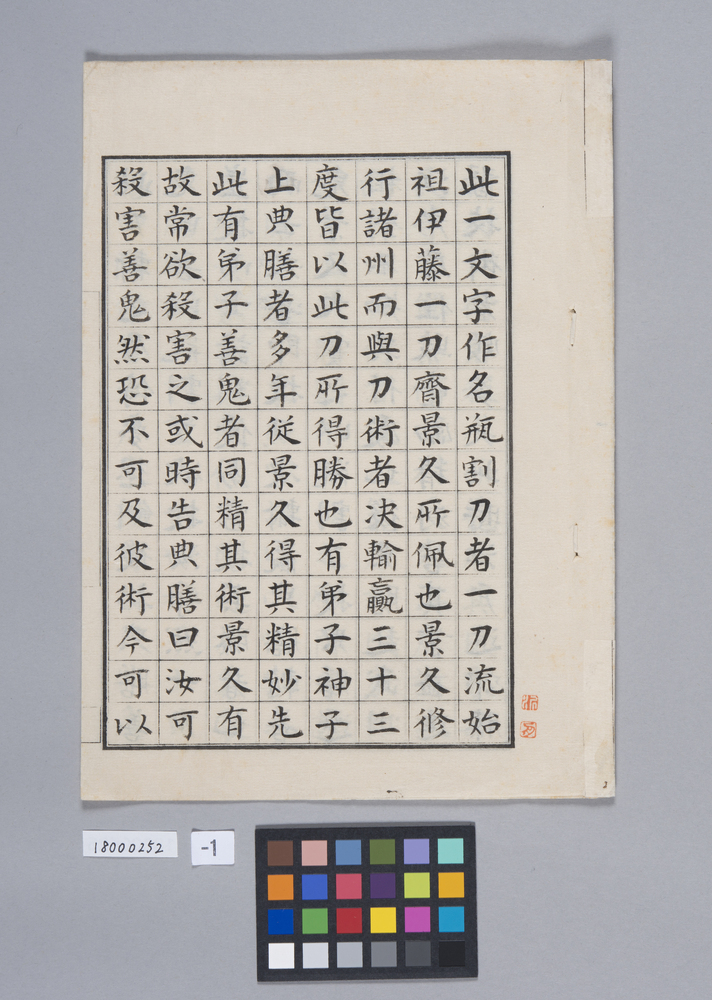 此一文字作名瓶割刀者一刀流始
祖伊藤一刀齊景久所佩也景久修
行諸州而與刀術者决輸贏三十三
度皆以此刀所得勝也有弟子神子
上典膳者多年従景久得其精妙先
此有弟子善鬼者同精其術景久有
故常欲殺害之或時告典膳曰汝可
殺害善鬼然恐不可及彼術今可以
18000252
-1